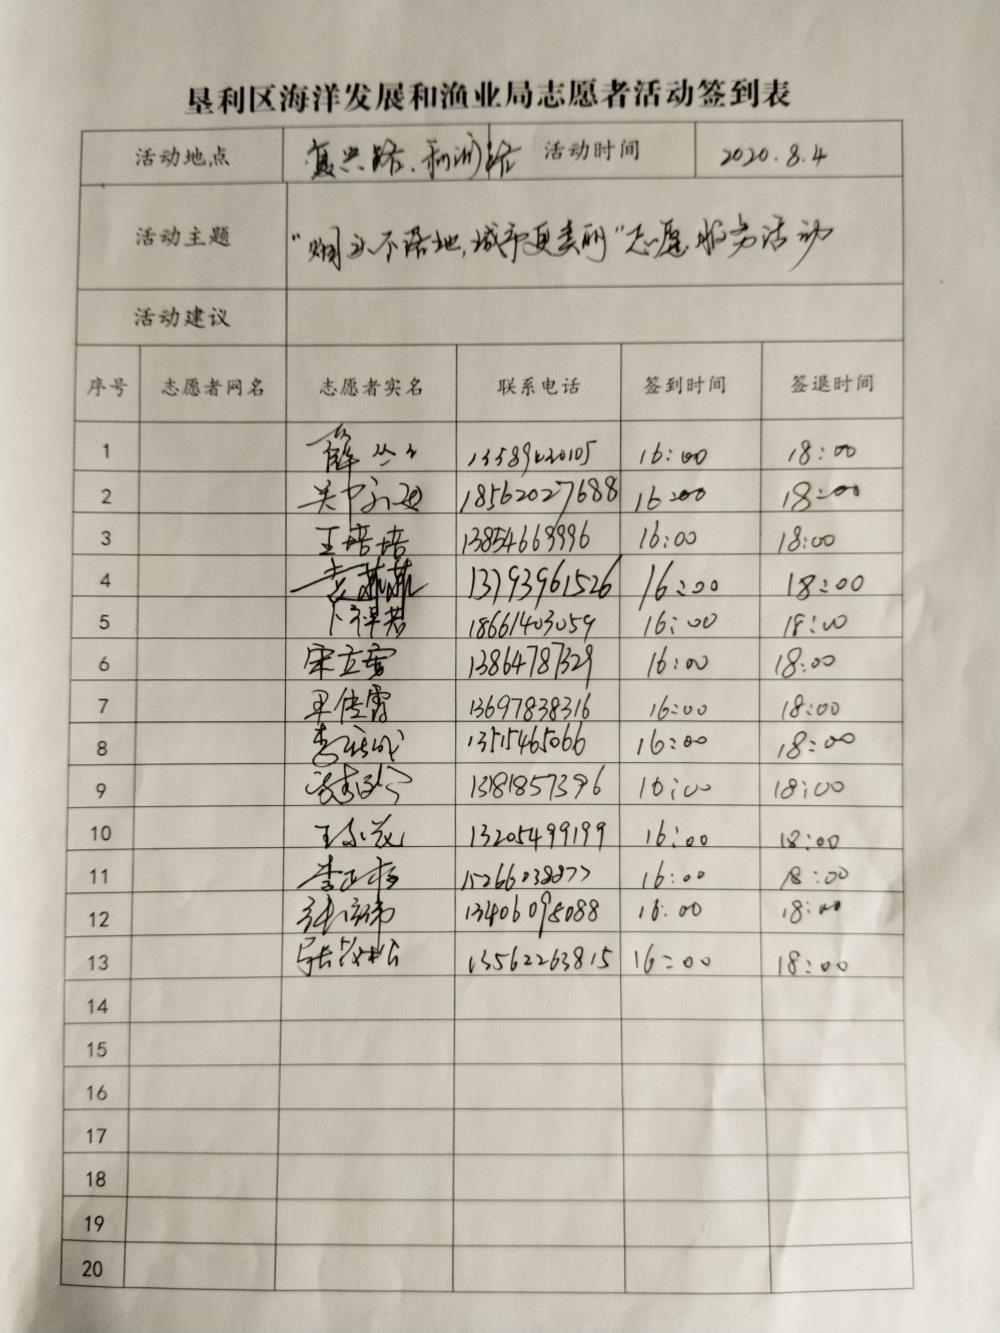 垦利区海洋发展和渔业局志愿者活动签到表
活动地点 复兴路、利河路 活动时间 2020.8.4
活动主题 "烟头不落地,城市更美丽"志愿服务活动
活动建议
序号 志愿者网名 志愿者实名 联系电话 签到时间 签退时间
1 薛丛丛 16:00 18:00
2 18562027688 16:00 18:00
3 王培培 13854669996 16:00 18:00
4 袁燕燕 13793961526 16:00 18:00
5 卜祥君 18661403059 16:00 18:00
6 宋立雪 13864787329 16:00 18:00
7 13697838316 16:00 18:00
8 13515465066 16:00 18:00
9 13181857396 16:00 18:00
10 13205499199 16:00 18:00
11 15266038877 16:00 18:00
12 13406098088 16:00 18:00
13 13562263815 16:00 18:00
14
15
16
17
18
19
20